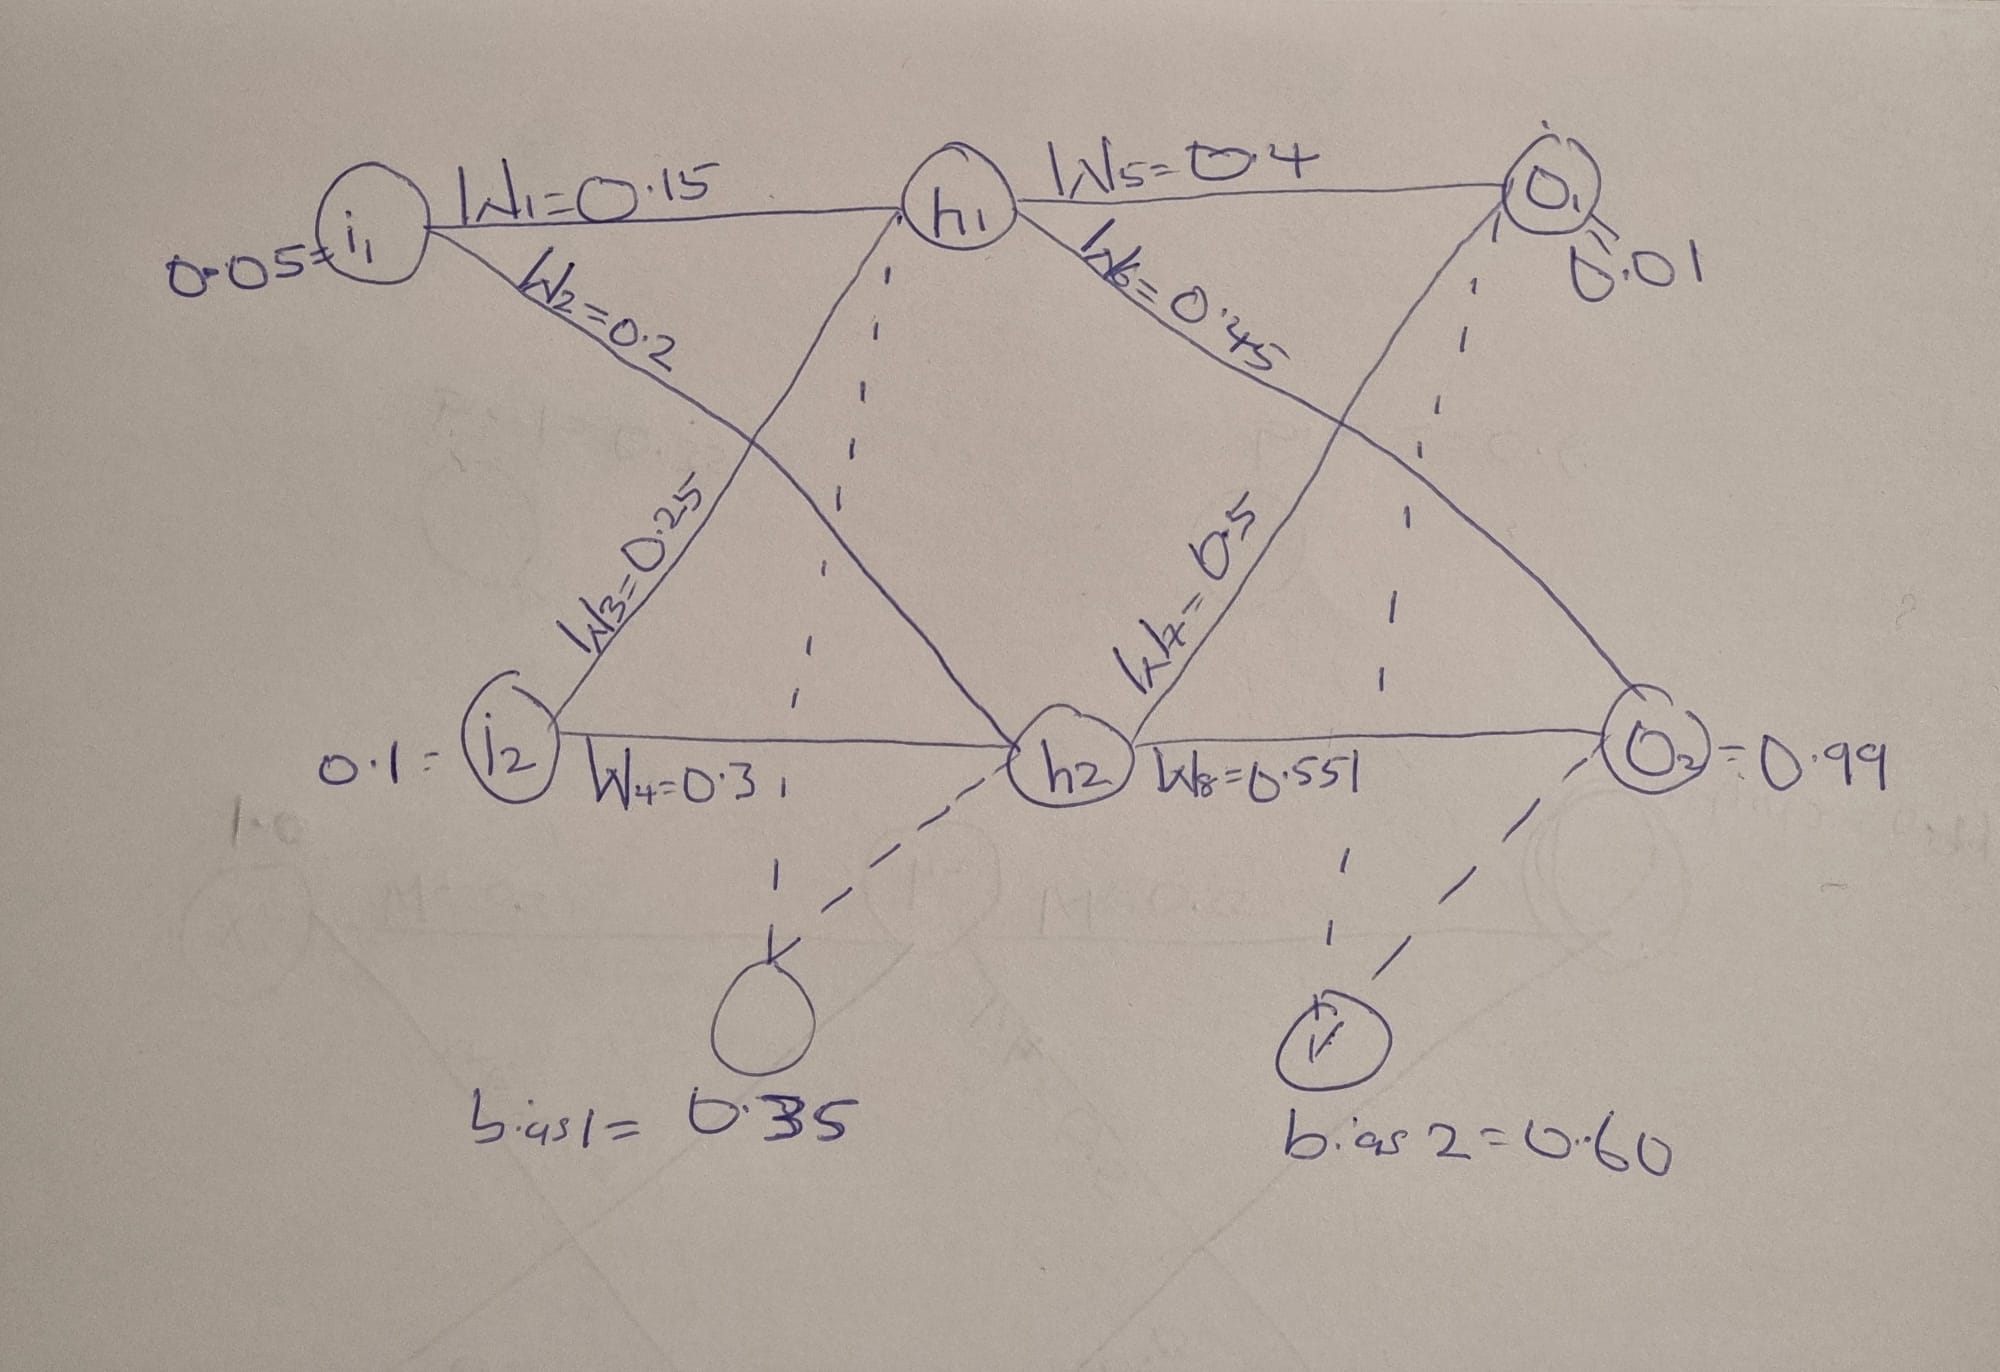 W1=0.15
W5=0.4
i1
h1
O1
0.05=
=
0.01
W2=0.2
W6=0.45
W3=0.25
W7=0.5
0.1=
i2
W4=0.3
h2
W8=0.55
O2
=0.99
bias1= 0.35
bias2=0.60